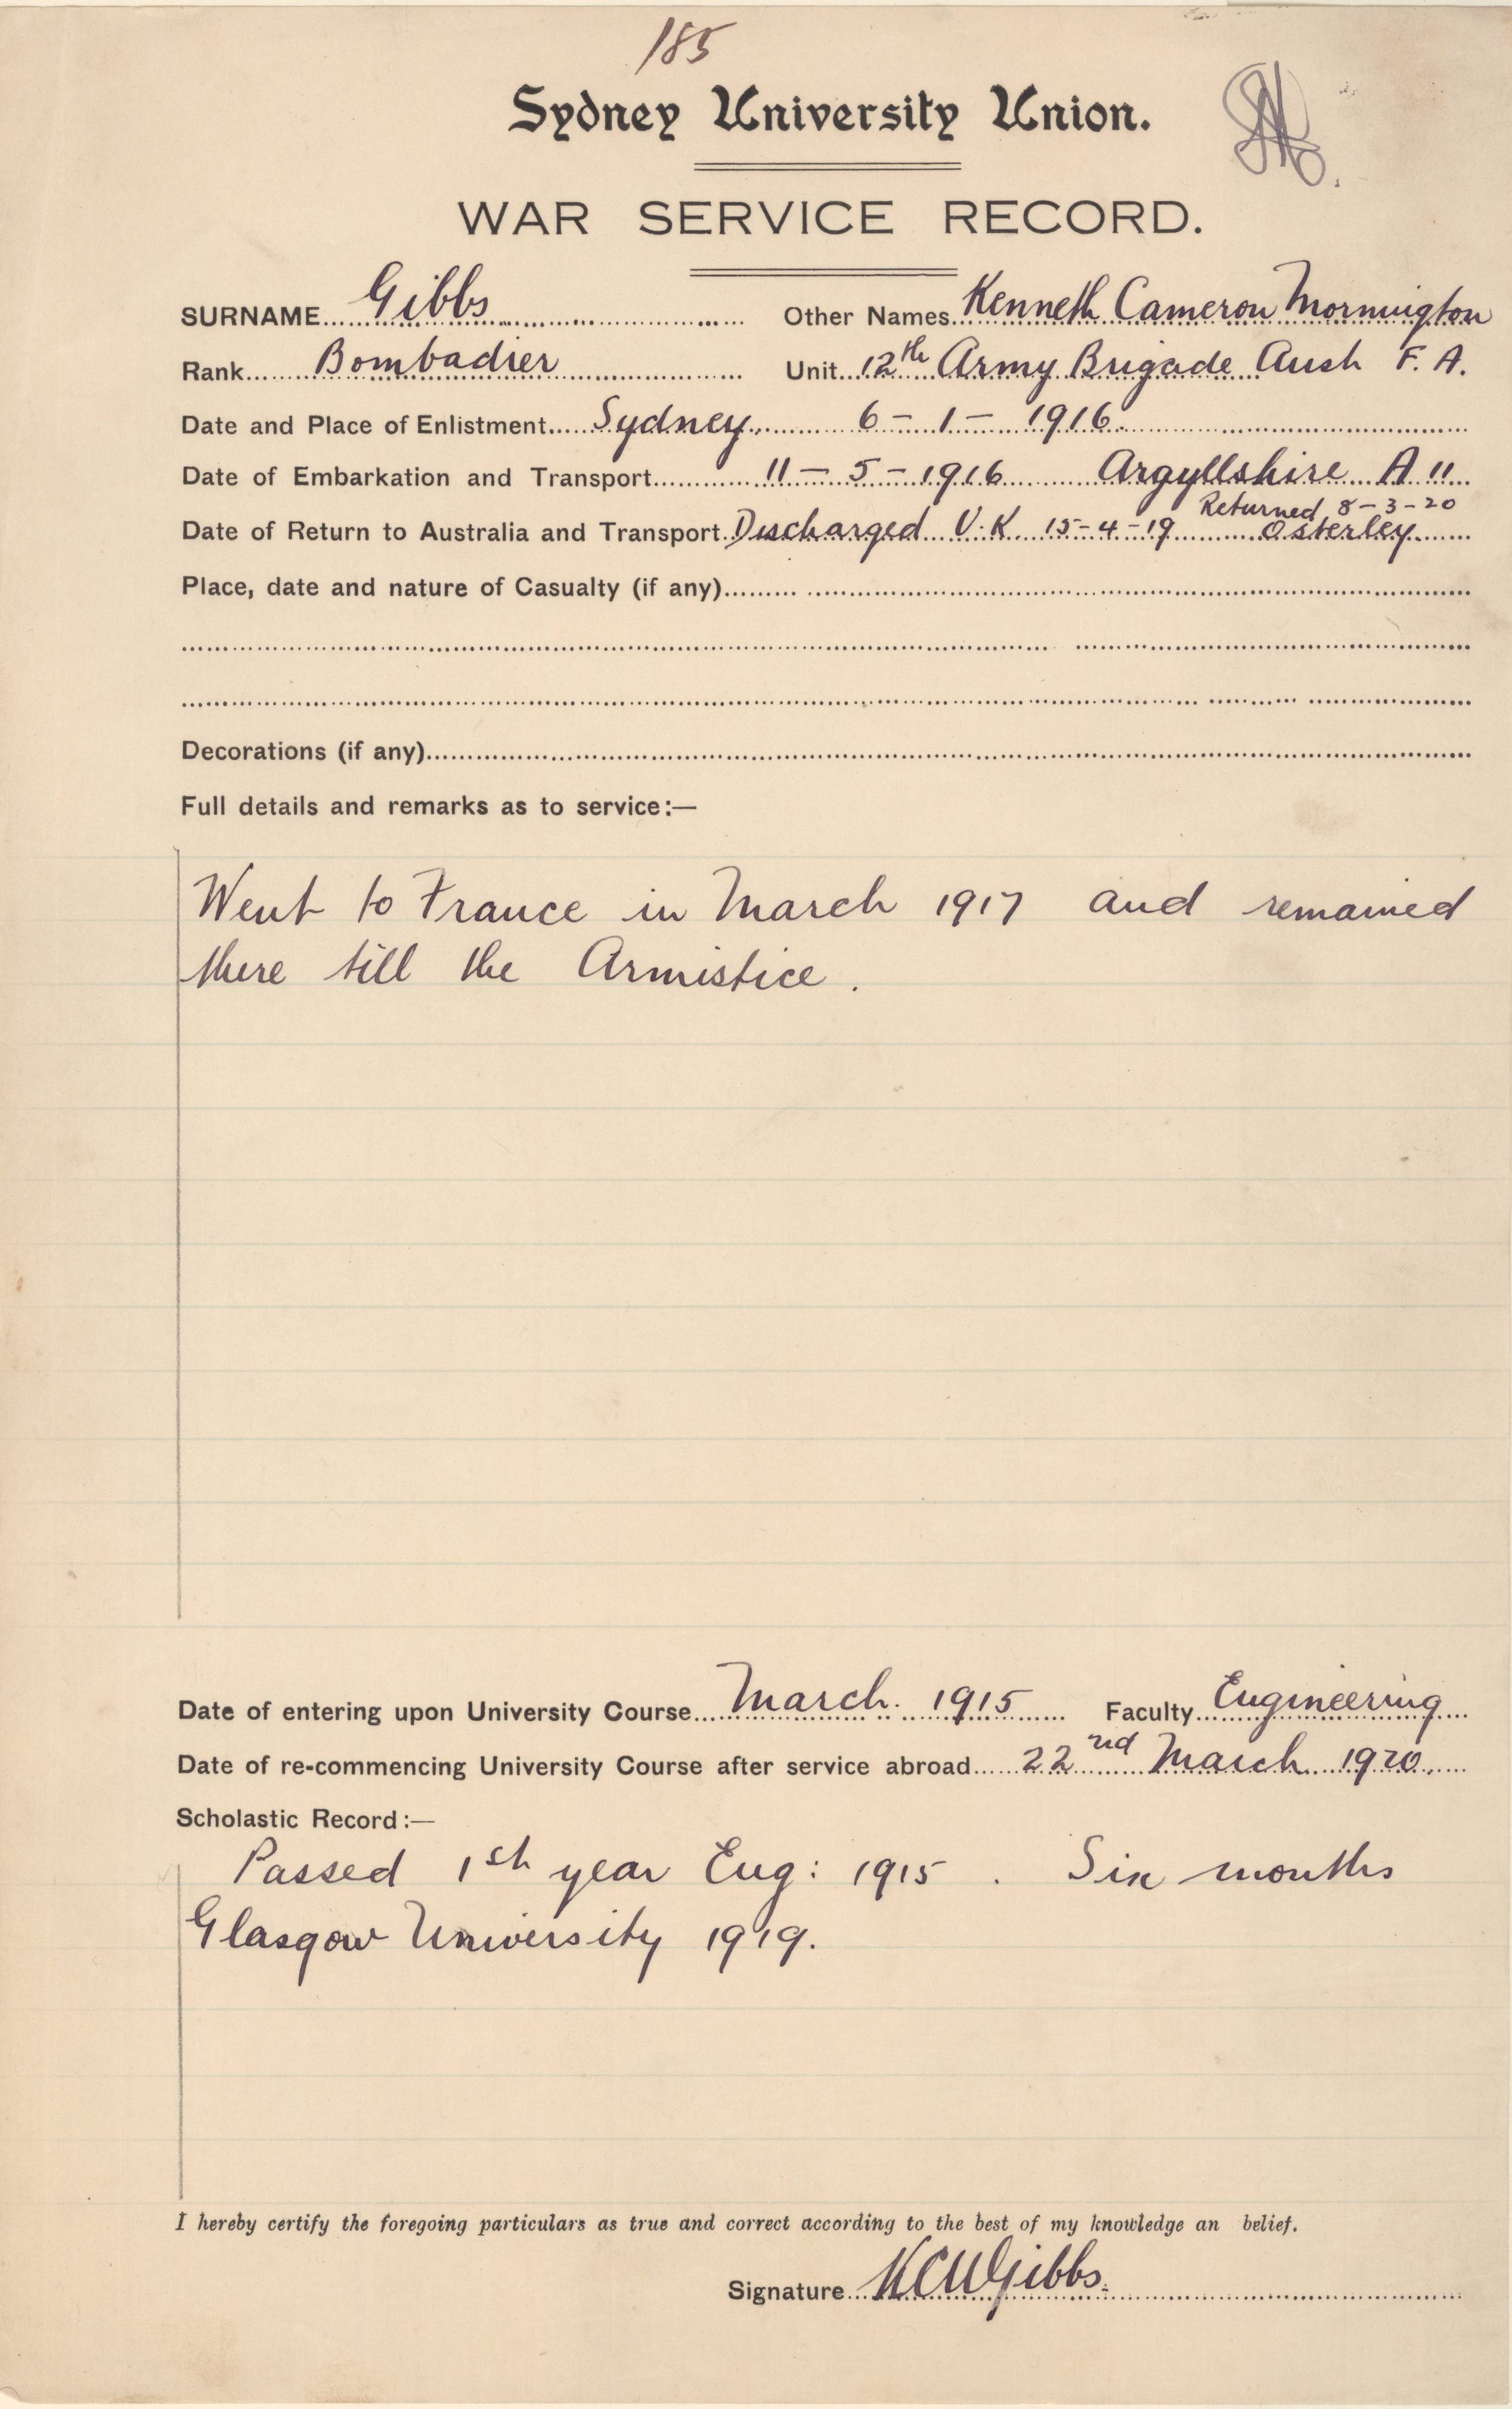 185
Sydney University Union.
WAR SERVICE RECORD.
SURNAME Gibbs Other Names Kenneth Cameron Mornington
Rank Bombadier Unit 12th Army Brigade Aust F. A.
Date and Place of Enlistment Sydney 6 - 1 - 1916.
Date of Embarkation and Transport 11 - 5 - 1916 Argyllshire A 11
Returned 8-3-20
Date of Return to Australia and Transport Discharged U.K. 15-4-19 Osterley
Place, date and nature of Casualty (if any)
Decorations (if any)
Full details and remarks as to service:—
Went to France in March 1917 and remained
there till the Armistice.
Date of entering upon University Course March. 1915 Faculty Engineering
Date of re-commencing University Course after service abroad 22nd March 1920.
Scholastic Record:—
Passed 1st year Eng: 1915. Six months
Glasgow University 1919.
I hereby certify the foregoing particulars as true and correct according to the best of my knowledge an belief.
Signature KCMGibbs.